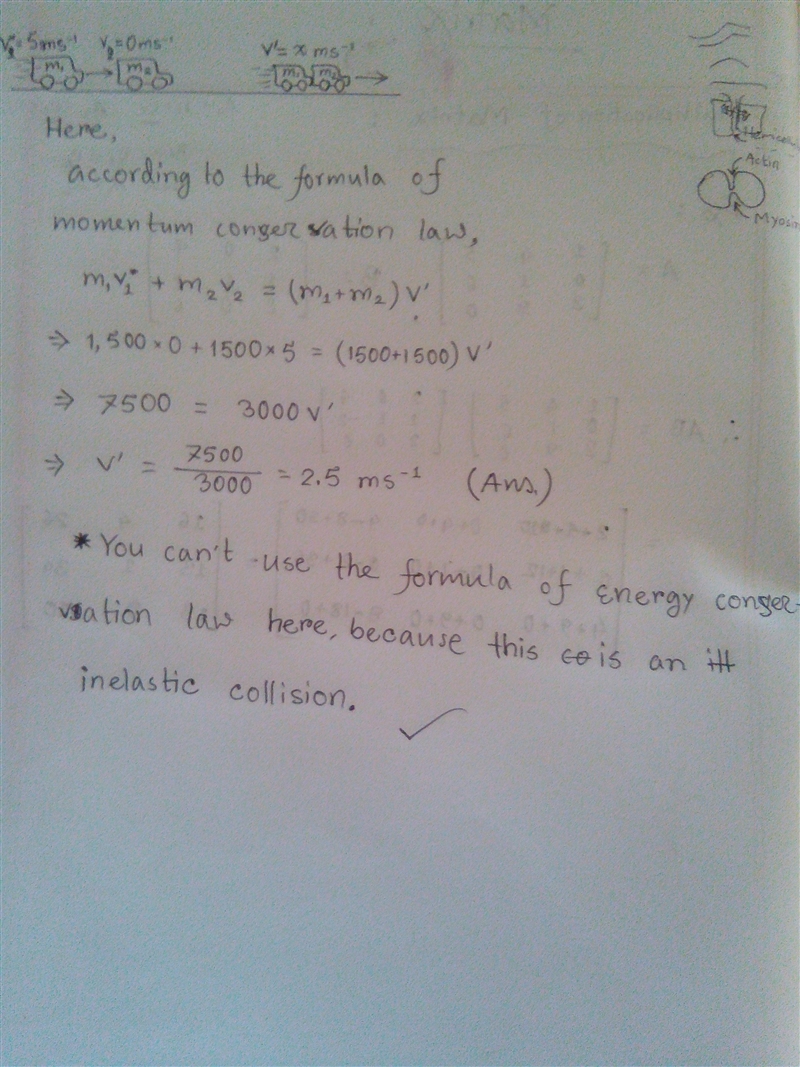 V₁=5ms⁻¹ V₂=0ms⁻¹ V'= x ms⁻¹
m₁ m₂ m₁ m₂
Here,
according to the formula of
momentum conservation law,
m₁v₁ + m₂v₂ = (m₁+m₂) V'
⇒ 1,500×0 + 1500×5 = (1500+1500) V'
⇒ 7500 = 3000 v'
⇒ V' = 7500/3000 = 2.5 ms⁻¹ (Ans.)
* You can't use the formula of energy conser-
vation law here, because this is an
inelastic collision.
Actin
Myosin